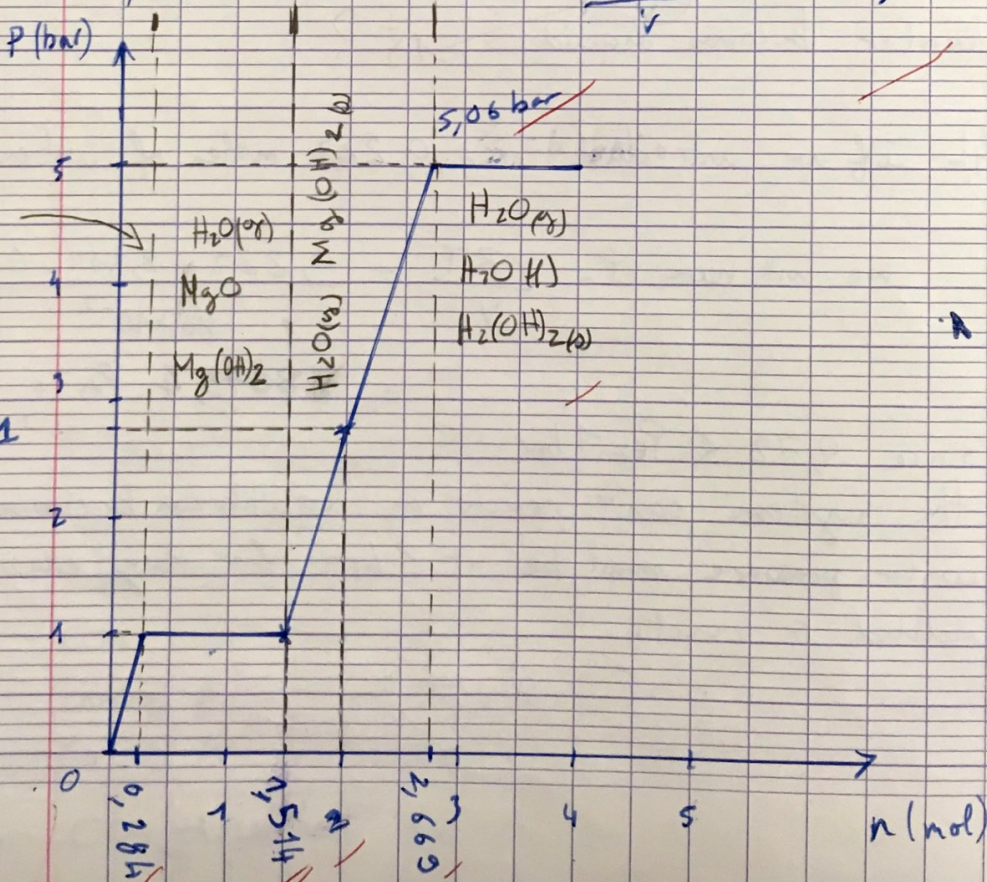 P (bar)
5,06 bar
5
4
3
1
2
1
0
H₂O(g)
MgO
Mg(OH)₂
H₂O(g) Mg(OH)₂(s)
H₂O(g)
H₂O(l)
H₂(OH)₂(s)
0,284
1
1,514
2
2,669
3
4
5
n (mol)